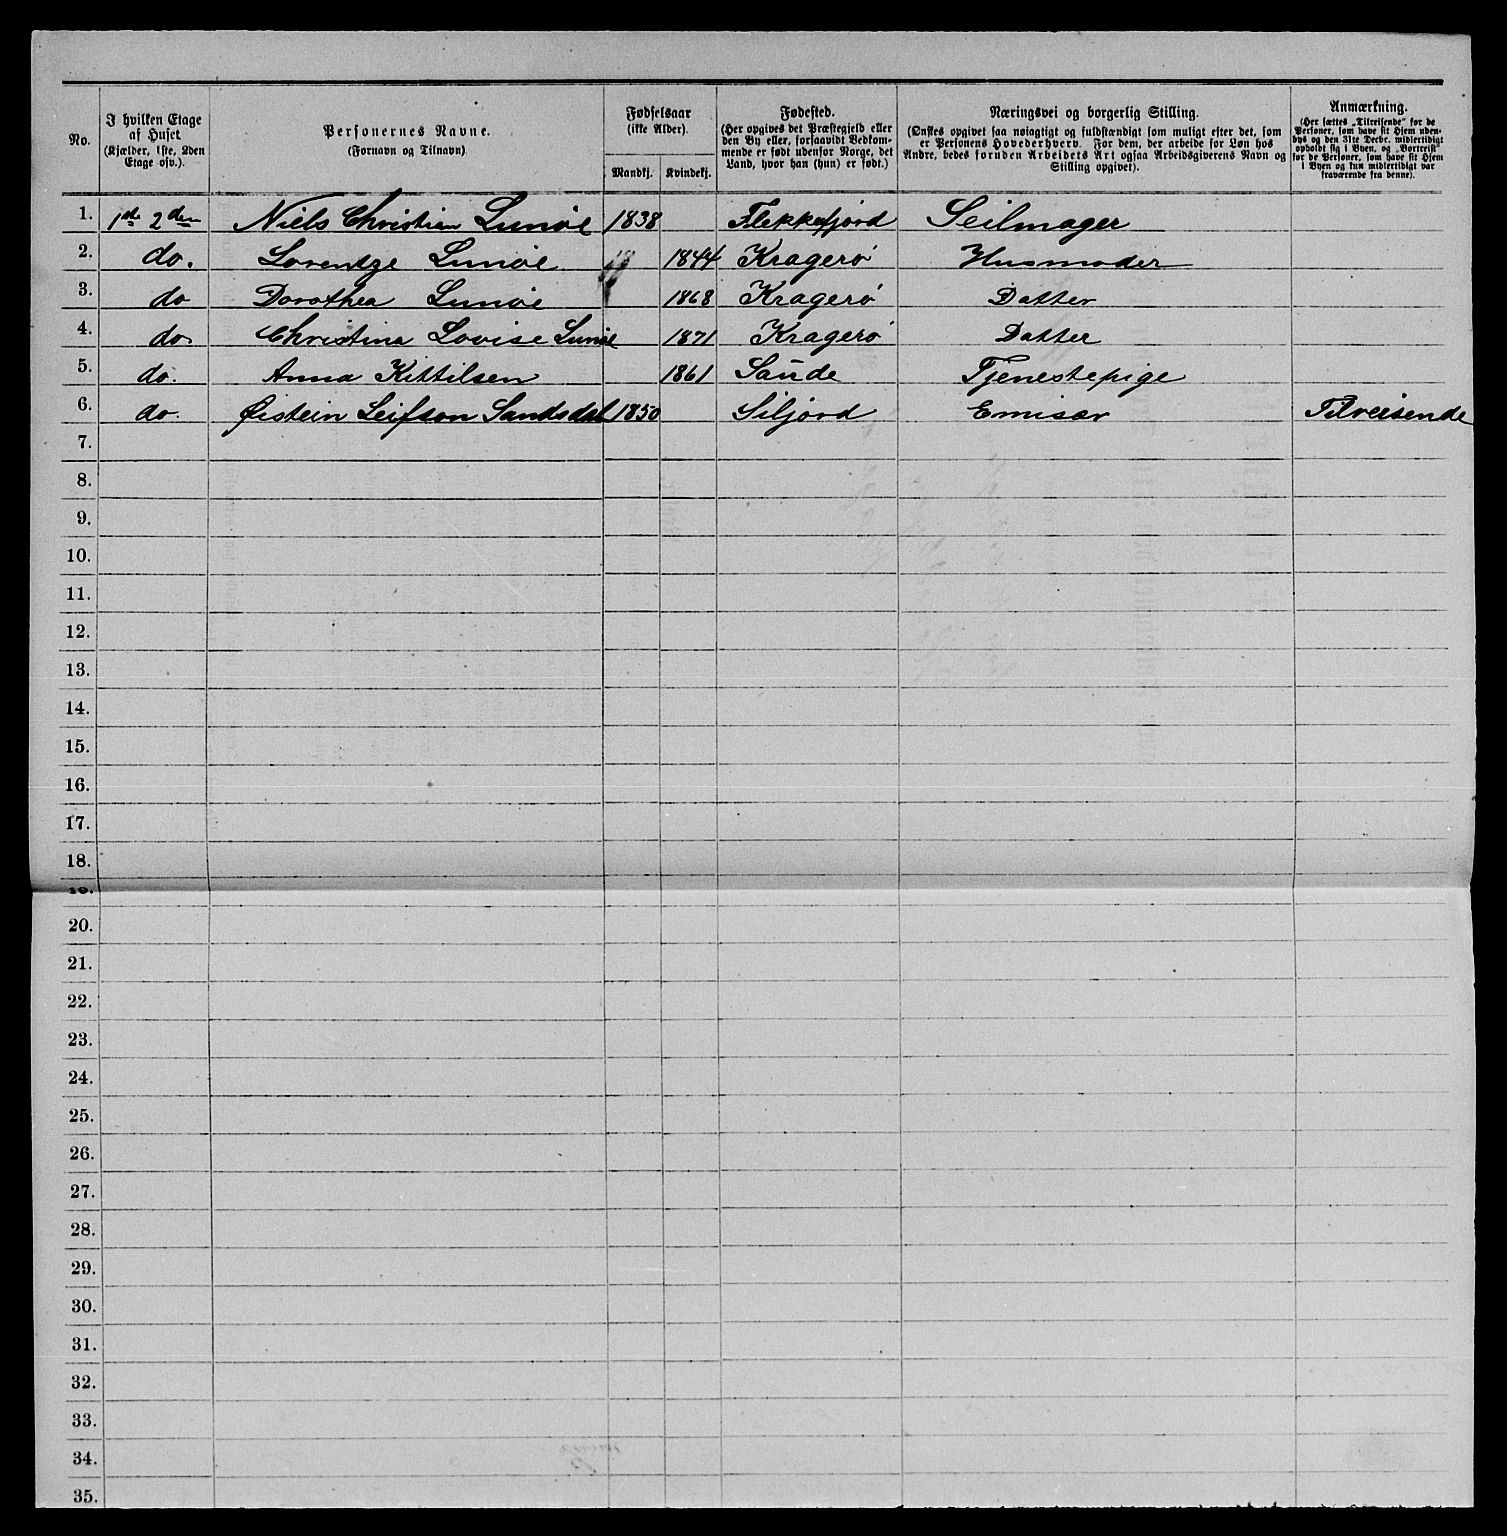 No.
I hvilken Etage
af Huset
(Kjælder, 1ste, 2den
Etage osv.).
Personernes Navne.
(Fornavn og Tilnavn).
Fødselsaar
(ikke Alder).
Mandkj.
Kvindekj.
Fødested.
(Her opgives det Præstegjeld eller
den By eller, forsaavidt Vedkom-
mende er født udenfor Norge, det
Land, hvor han (hun) er født.)
Næringsvei og borgerlig Stilling.
(Ønskes opgivet saa nøiagtigt og fuldstændigt som muligt efter det, som
er Personens Hovederhverv. For dem, der arbeide for Løn hos
Andre, bedes foruden Arbeidets Art ogsaa Arbeidsgiverens Navn og
Stilling opgivet).
Anmærkning.
(Her sættes „Tilreisende" for de
Personer, som have sit Hjem uden-
bys og den 31te Decbr. midlertidigt
opholdt sig i Byen, og „Bortreist"
for de Personer, som have sit Hjem
i Byen og kun midlertidigt var
fraværende fra denne).
1. 1st 2den Niels Christian Lunøe 1838 Flekkefjord Seilmager
2. do. Lorentze Lunøe 1844 Kragerø Husmoder
3. do Dorothea Lunøe 1868 Kragerø Datter
4. do. Christina Lovise Lunøe 1871 Kragerø Datter
5. do. Anna Kittilsen 1861 Saude Tjenestepige
6. do. Øistein Leifson Sandsdal 1850 Siljord Emisær Tilreisende
7.
8.
9.
10.
11.
12.
13.
14.
15.
16.
17.
18.
19.
20.
21.
22.
23.
24.
25.
26.
27.
28.
29.
30.
31.
32.
33.
34.
35.